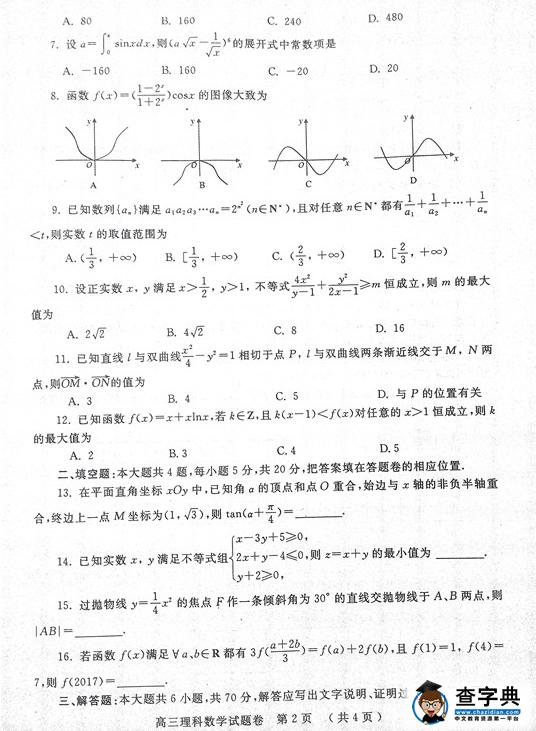 A. 80 B. 160 C. 240 D. 480
7. 设 a=∫₀^π sinxdx,则(a√x−1/√x)⁶的展开式中常数项是
A. −160 B. 160 C. −20 D. 20
8. 函数 f(x)=((1−2ˣ)/(1+2ˣ))cosx 的图像大致为
y x O y x O y x O y x O
A B C D
9. 已知数列{aₙ}满足 a₁a₂a₃⋯aₙ=2^(n²) (n∈N*),且对任意 n∈N* 都有 1/a₁+1/a₂+⋯+1/aₙ
<t,则实数 t 的取值范围为
A.(1/3, +∞) B. [1/3, +∞) C. (2/3, +∞) D. [2/3, +∞)
10. 设正实数 x, y 满足 x>1/2, y>1, 不等式 4x²/(y−1)+y²/(2x−1)≥m 恒成立,则 m 的最大
值为
A. 2√2 B. 4√2 C. 8 D. 16
11. 已知直线 l 与双曲线 x²/4−y²=1相切于点 P, l 与双曲线两条渐近线交于 M, N 两
点,则OM·ON的值为
A. 3 B. 4 C. 5 D. 与 P 的位置有关
12. 已知函数 f(x)=x+xlnx,若 k∈Z,且 k(x−1)<f(x)对任意的 x>1 恒成立,则 k
的最大值为
A. 2 B. 3 C. 4 D. 5
二、填空题:本大题共 4 题,每小题 5 分,共 20 分,把答案填在答题卷的相应位置.
13. 在平面直角坐标 xOy 中,已知角 α 的顶点和点 O 重合,始边与 x 轴的非负半轴重
合,终边上一点 M 坐标为(1,√3),则 tan(α+π/4)=______.
14. 已知实数 x, y 满足不等式组{x−3y+5≥0, 2x+y−4≤0, y+2≥0, 则 z=x+y 的最小值为 ______.
15. 过抛物线 y=1/4x² 的焦点 F 作一条倾斜角为 30° 的直线交抛物线于 A、B 两点,则
|AB|=______.
16. 若函数 f(x)满足∀a、b∈R 都有 3f((a+2b)/3)=f(a)+2f(b),且 f(1)=1, f(4)=
7,则 f(2017)=______.
三、解答题:本大题共 6 小题,共 70 分,解答应写出文字说明、证明过
高三理科数学试题卷 第 2 页 (共 4 页)
查字典
中文教育资源第一平台